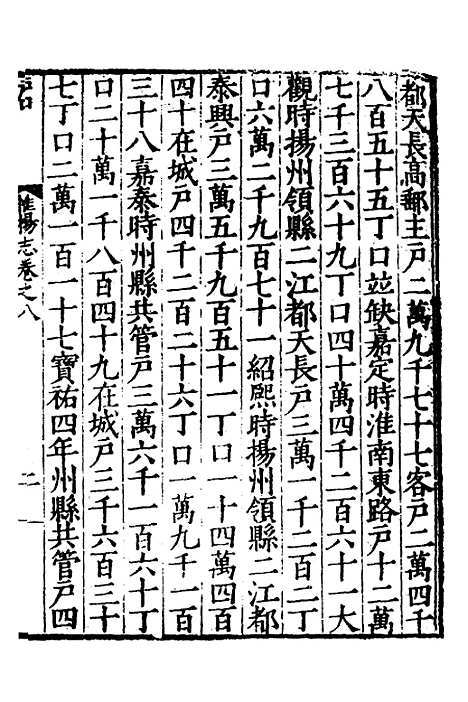 都天長高郵主戸二萬九千七十七客戸二萬四千
八百五十五丁口竝缺嘉定時淮南東路戸十二萬
七千三百六十九丁口四十萬四千二百六十一大
觀時揚州領縣二江都天長戸三萬一千二百二丁
口六萬二千九百七十一紹熙時揚州領縣二江都
泰興戸三萬五千九百五十一丁口一十四萬四百
四十在城戸四千二百二十六丁口一萬九千一百
三十八嘉泰時州縣共管戸三萬六千一百六十丁
口二十萬一千八百四十九在城戸三千六百三十
七丁口二萬一百一十七寶祐四年州縣共管戸四
惟揚志卷之八
二